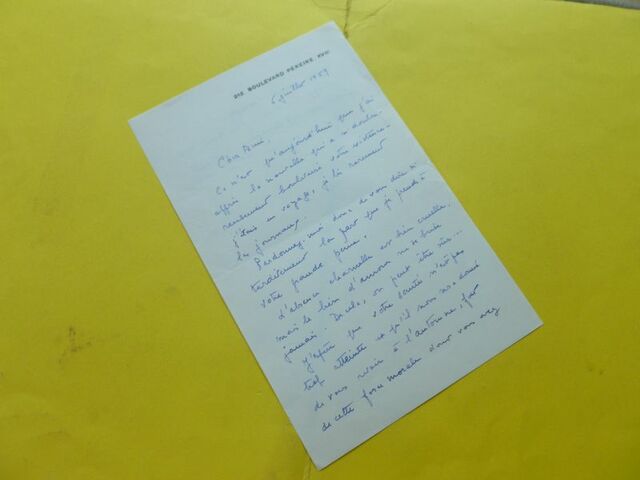 212 BOULEVARD PEREIRE. XVII
6 juillet 1959
Cher Ami,
Ce n'est qu'aujourd'hui que j'ai
appris la nouvelle qui a
bouleversé votre existence.
J'étais en voyage, je lis rarement
les journaux.
Pardonnez-moi donc de vous dire si
tardivement la part que je prends à
votre grande peine.
L'absence charnelle est bien cruelle.
mais le lien d'amour ne se brise
jamais. De cela, on peut être sûr...
J'espère que votre santé n'est pas
trop atteinte et qu'il nous sera donné
de vous voir à l'automne,
de cette force morale dont vous avez